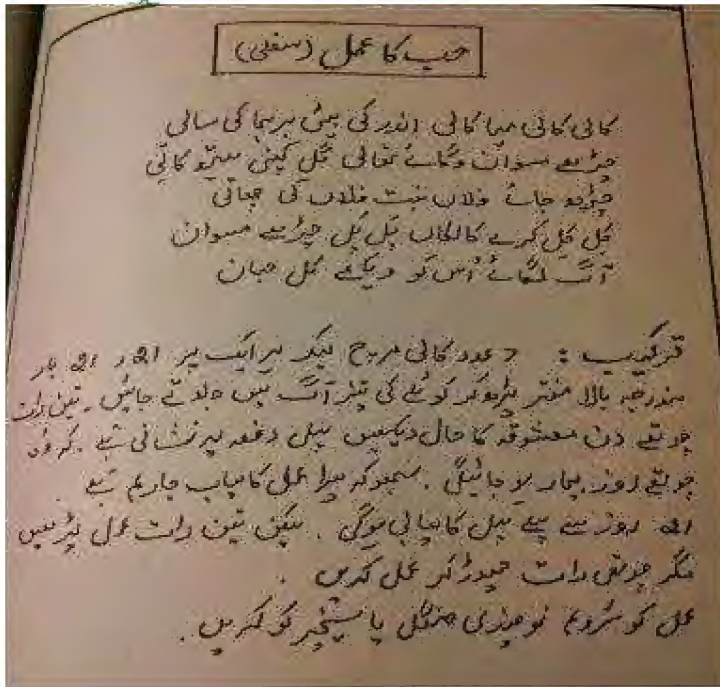 حب کا عمل (سفلی)
کالی کالی مہا کالی اندر کی بیٹی برہما کی سالی
چڑھے مسوان وگائے تھالی گل
چڑھو جائے فلاں بنت فلاں کی چھاتی
کل کل کرے کالکاں پل پل چڑھے مسوان
آگ لگائے اُس کو دیکھے کل جہان
ترکیب : 7 عدد کالی مرچ لیکر ہر ایک پر 21 ، 21 بار
مندرجہ بالا منتر پڑھ کر کوئلے کی تیز آگ میں جلاتے جائیں . تین رات
چوتھے دن معشوقہ کا حال دیکھیں پہلی دفعہ پر نشانی ہے . کہ وہ
چوتھے روز بیمار ہو جائیگی . سمجھو کہ میرا عمل کامیاب جا رہا ہے .
21 روز سے پہلے پہل کامیابی ہوگی . لیکن تین رات عمل پڑھیں
مگر چوتھی رات چھوڑ کر عمل کریں .
عمل کو شروع نوچندی منگل یا سنیچر کو کریں .